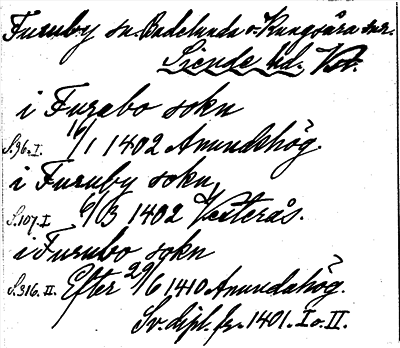 Furuby sn. Badelunda o. Kungsåra snr.
Siende hd. Vst.
i Furabo sokn
S.96.I. 16/1 1402 Anundshög.
i Furuby sokn,
S.107.I 6/3 1402 Vesterås.
i Furubo sokn
S.316.II. Efter 29/6 1410 Anundahög.
Sv. dipl. fr. 1401. I o. II.